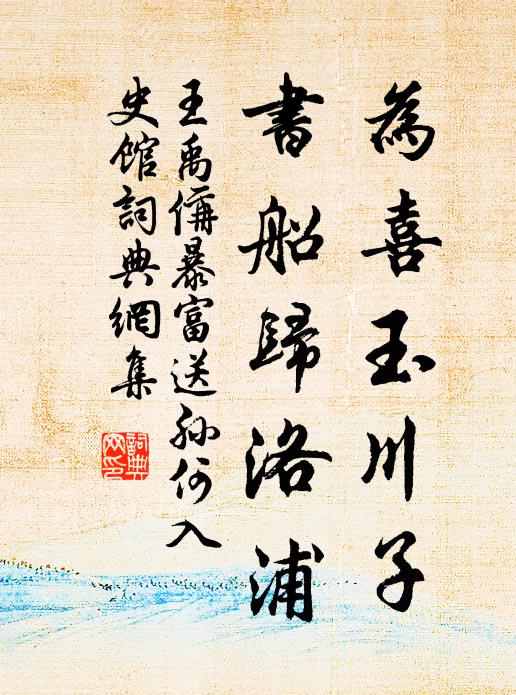 為喜玉川子
書船歸洛浦
王禹偁暴富送孫何入
史館詞典網集
詞典网印